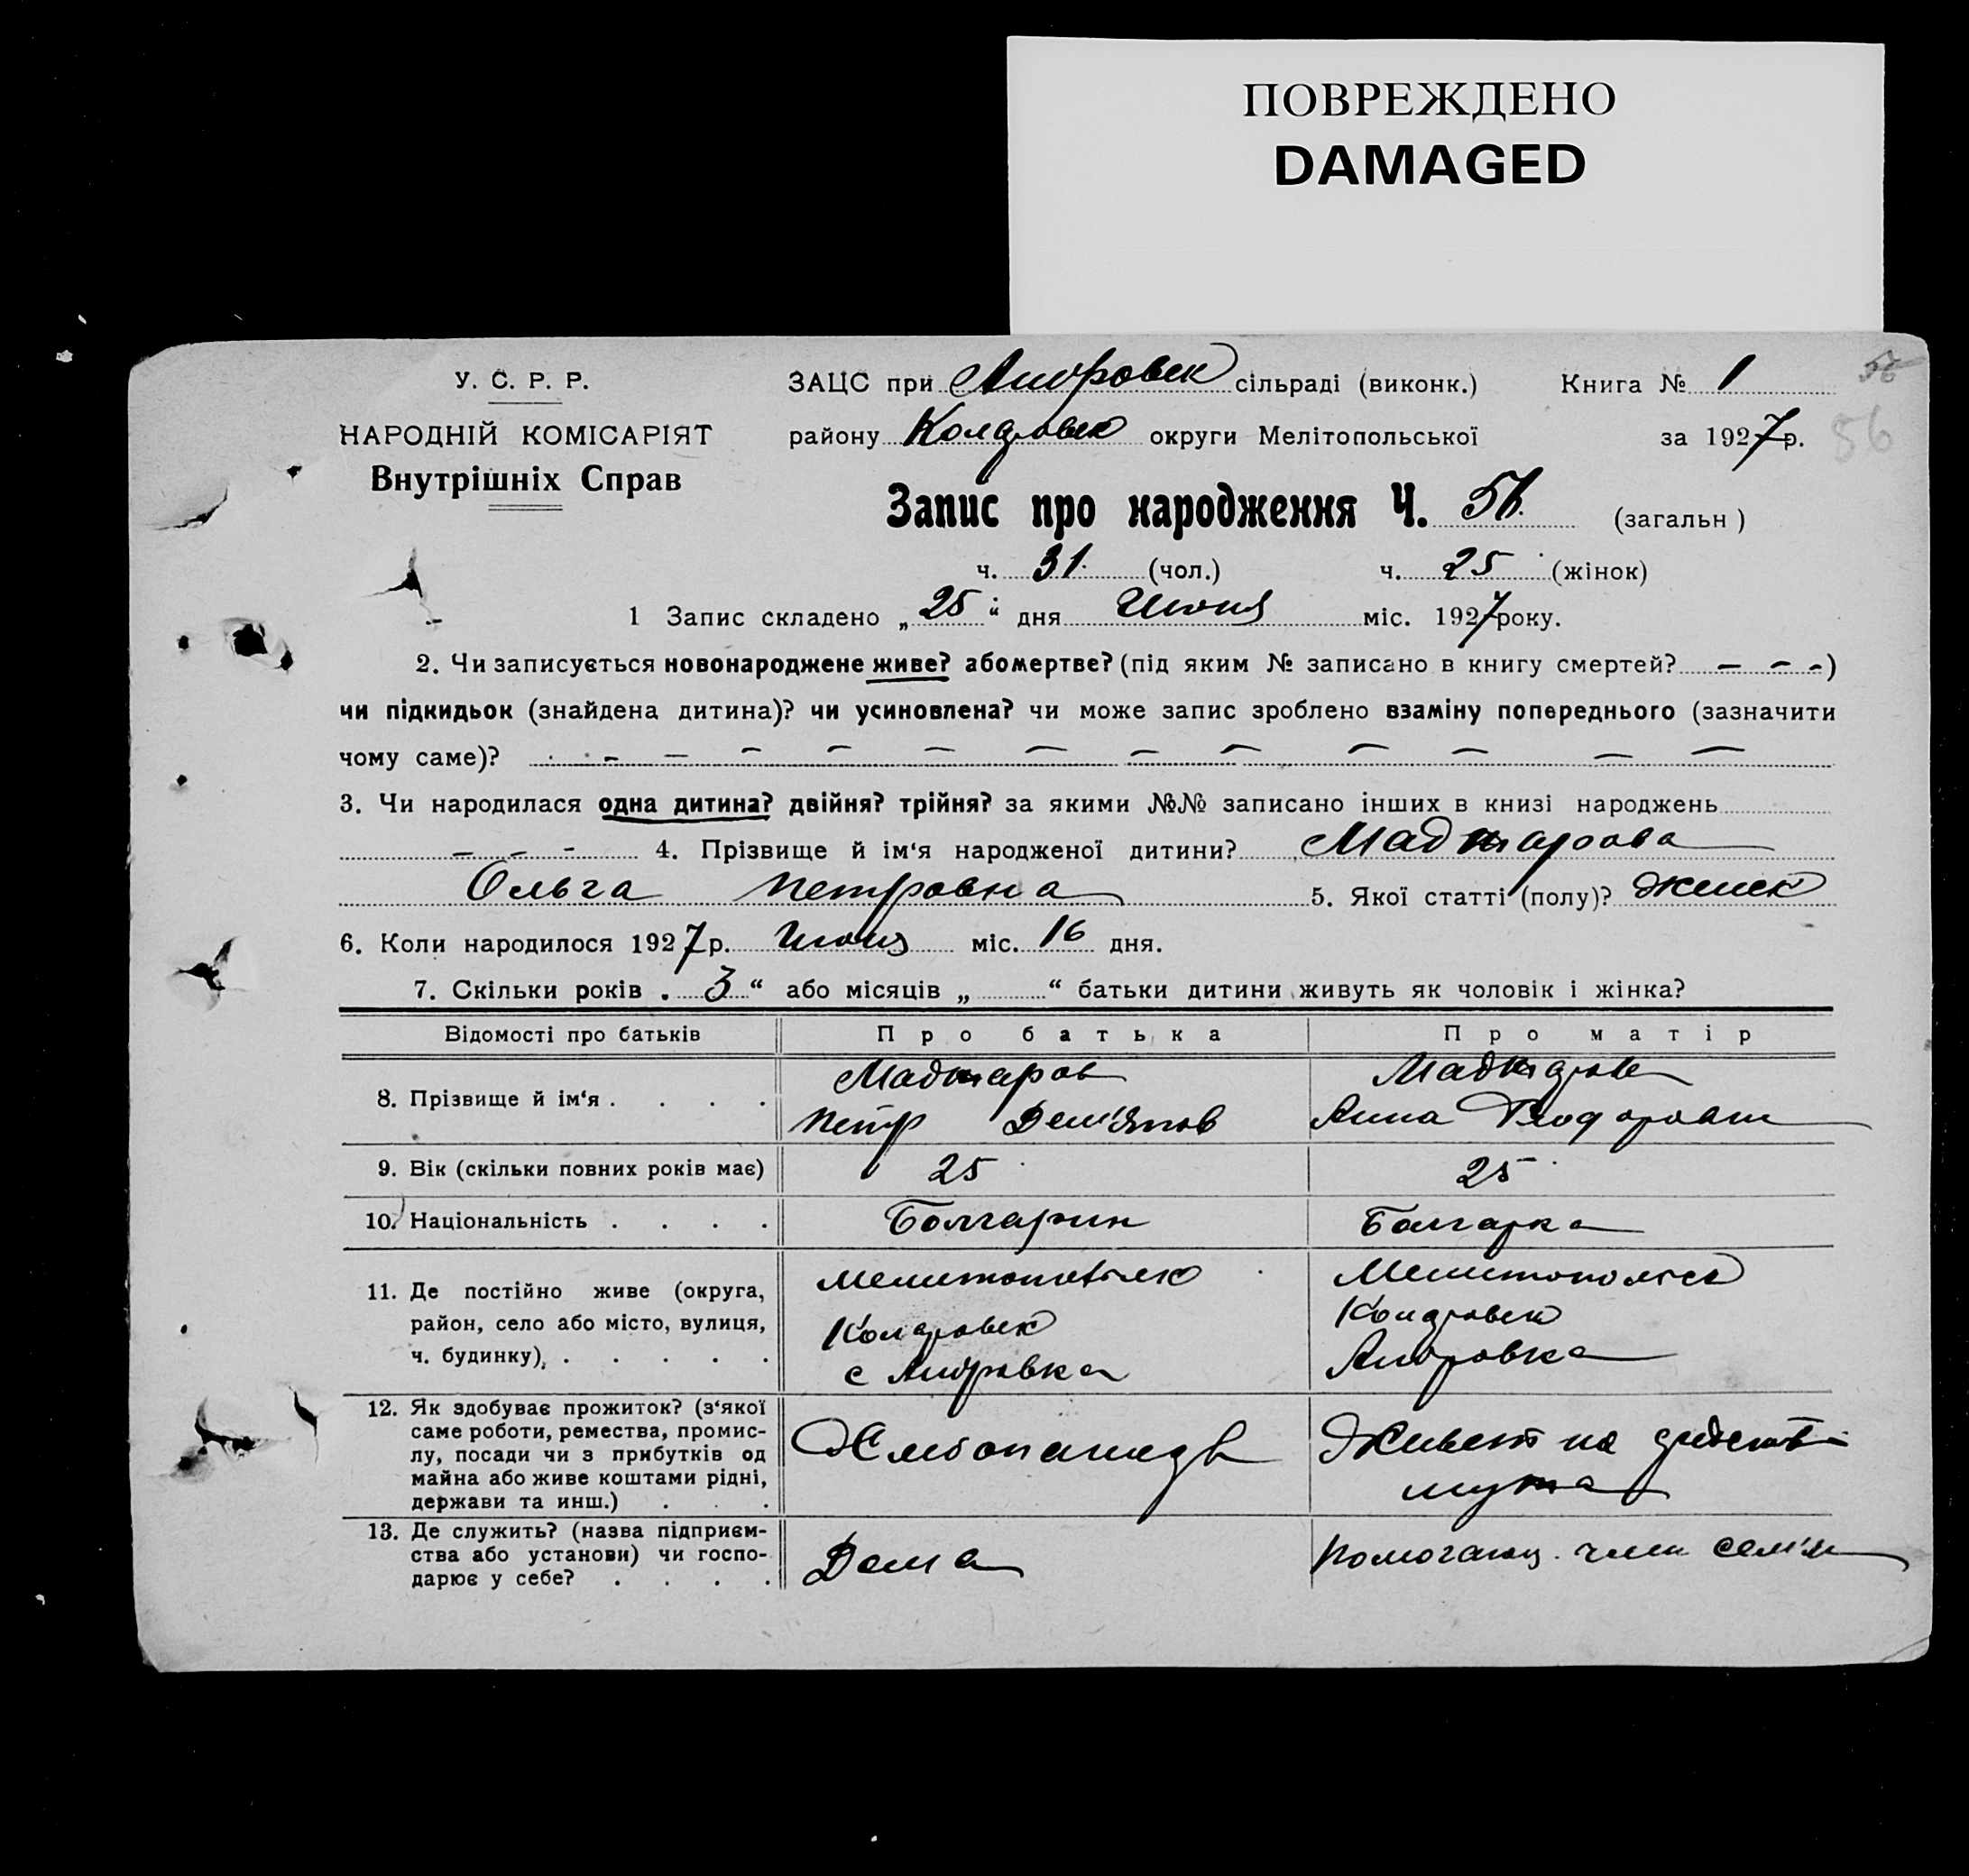 ПОВРЕЖДЕНО
DAMAGED
У. С. Р. Р.
НАРОДНІЙ КОМІСАРІЯТ
Внутрішніх Справ
ЗАЦС при Андровск сільраді (виконк.) Книга № 1 56
району Колдровск округи Мелітопольської за 1927 р. 56
Запис про народження Ч. 56. (загальн )
ч. 31. (чол.) ч. 25 (жінок)
1 Запис складено „ 25 “ дня Июня міс. 1927 року.
2. Чи записується новонароджене живе? або мертве? (під яким № записано в книгу смертей? – – –)
чи підкидьок (знайдена дитина)? чи усиновлена? чи може запис зроблено взаміну попереднього (зазначити
чому саме)? – – – – – – – – – – – –
3. Чи народилася одна дитина? двійня? трійня? за якими №№ записано інших в книзі народжень
– – – 4. Прізвище й ім‘я народженої дитини? Маджарова
Ольга Петровна 5. Якої статті (полу)? женск
6. Коли народилося 1927 р. Июня міс. 16 дня.
7. Скільки років „ 3 “ або місяців „ “ батьки дитини живуть як чоловік і жінка?
Відомості про батьків Про батька Про матір
8. Прізвище й ім‘я . . . . Маджаров Петр Демьянов Маджарова Анна Феодоровна
9. Вік (скільки повних років має) 25 25
10. Національність . . . . Болгарин Болгарка
11. Де постійно живе (округа, Мелитопольск Мелитопольск
район, село або місто, вулиця, Колдровск Колдровск
ч. будинку) . . . . . с Андровка Андровка
12. Як здобуває прожиток? (з‘якої
саме роботи, ремества, промис-
лу, посади чи з прибутків од Хлебопашец Живет на средства
майна або живе коштами рідні, мужа
держави та инш.) . . .
13. Де служить? (назва підприєм-
ства або установи) чи госпо- Дома Помогающ. член семьи
дарює у себе? . . . .